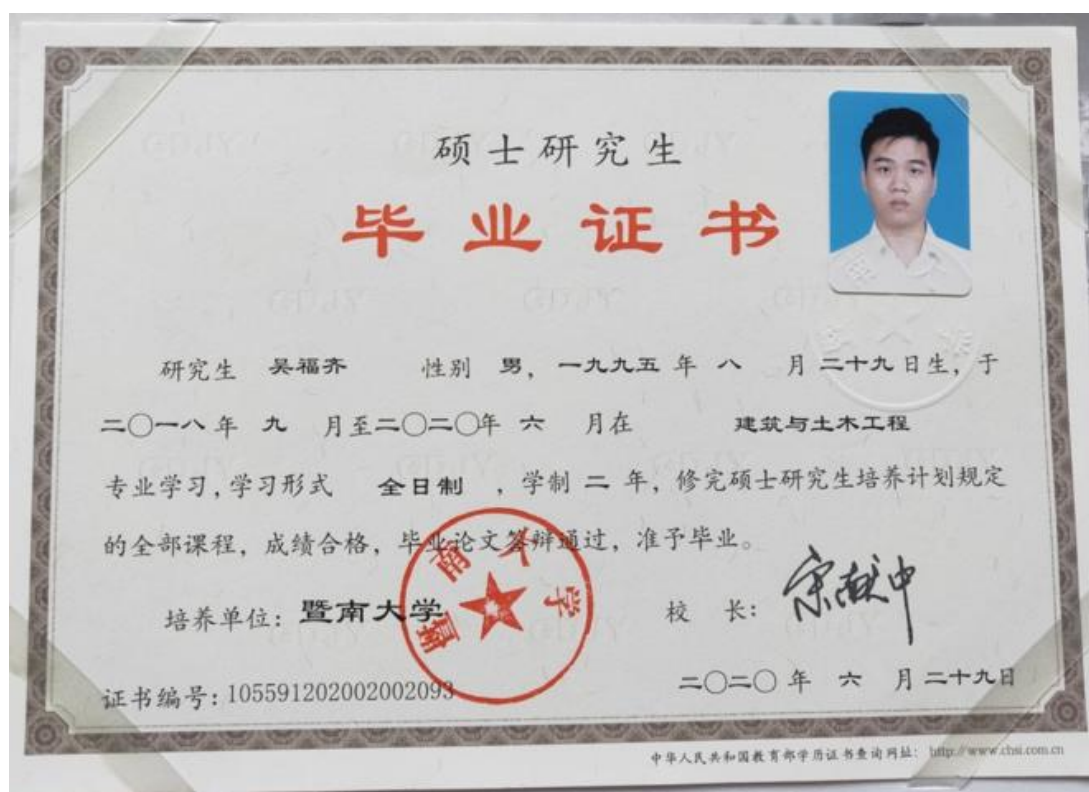 硕士研究生
毕业证书
研究生 吴福齐 性别 男，一九九五 年 八 月 二十九 日生，于
二〇一八年 九 月至二〇二〇年 六 月在 建筑与土木工程
专业学习，学习形式 全日制 ，学制 二 年，修完硕士研究生培养计划规定
的全部课程，成绩合格，毕业论文答辩通过，准予毕业。
培养单位：暨南大学
暨南大学
校 长：宋献中
证书编号：105591202002002093
二〇二〇 年 六 月 二十九日
中华人民共和国教育部学历证书查询网址：http://www.chsi.com.cn